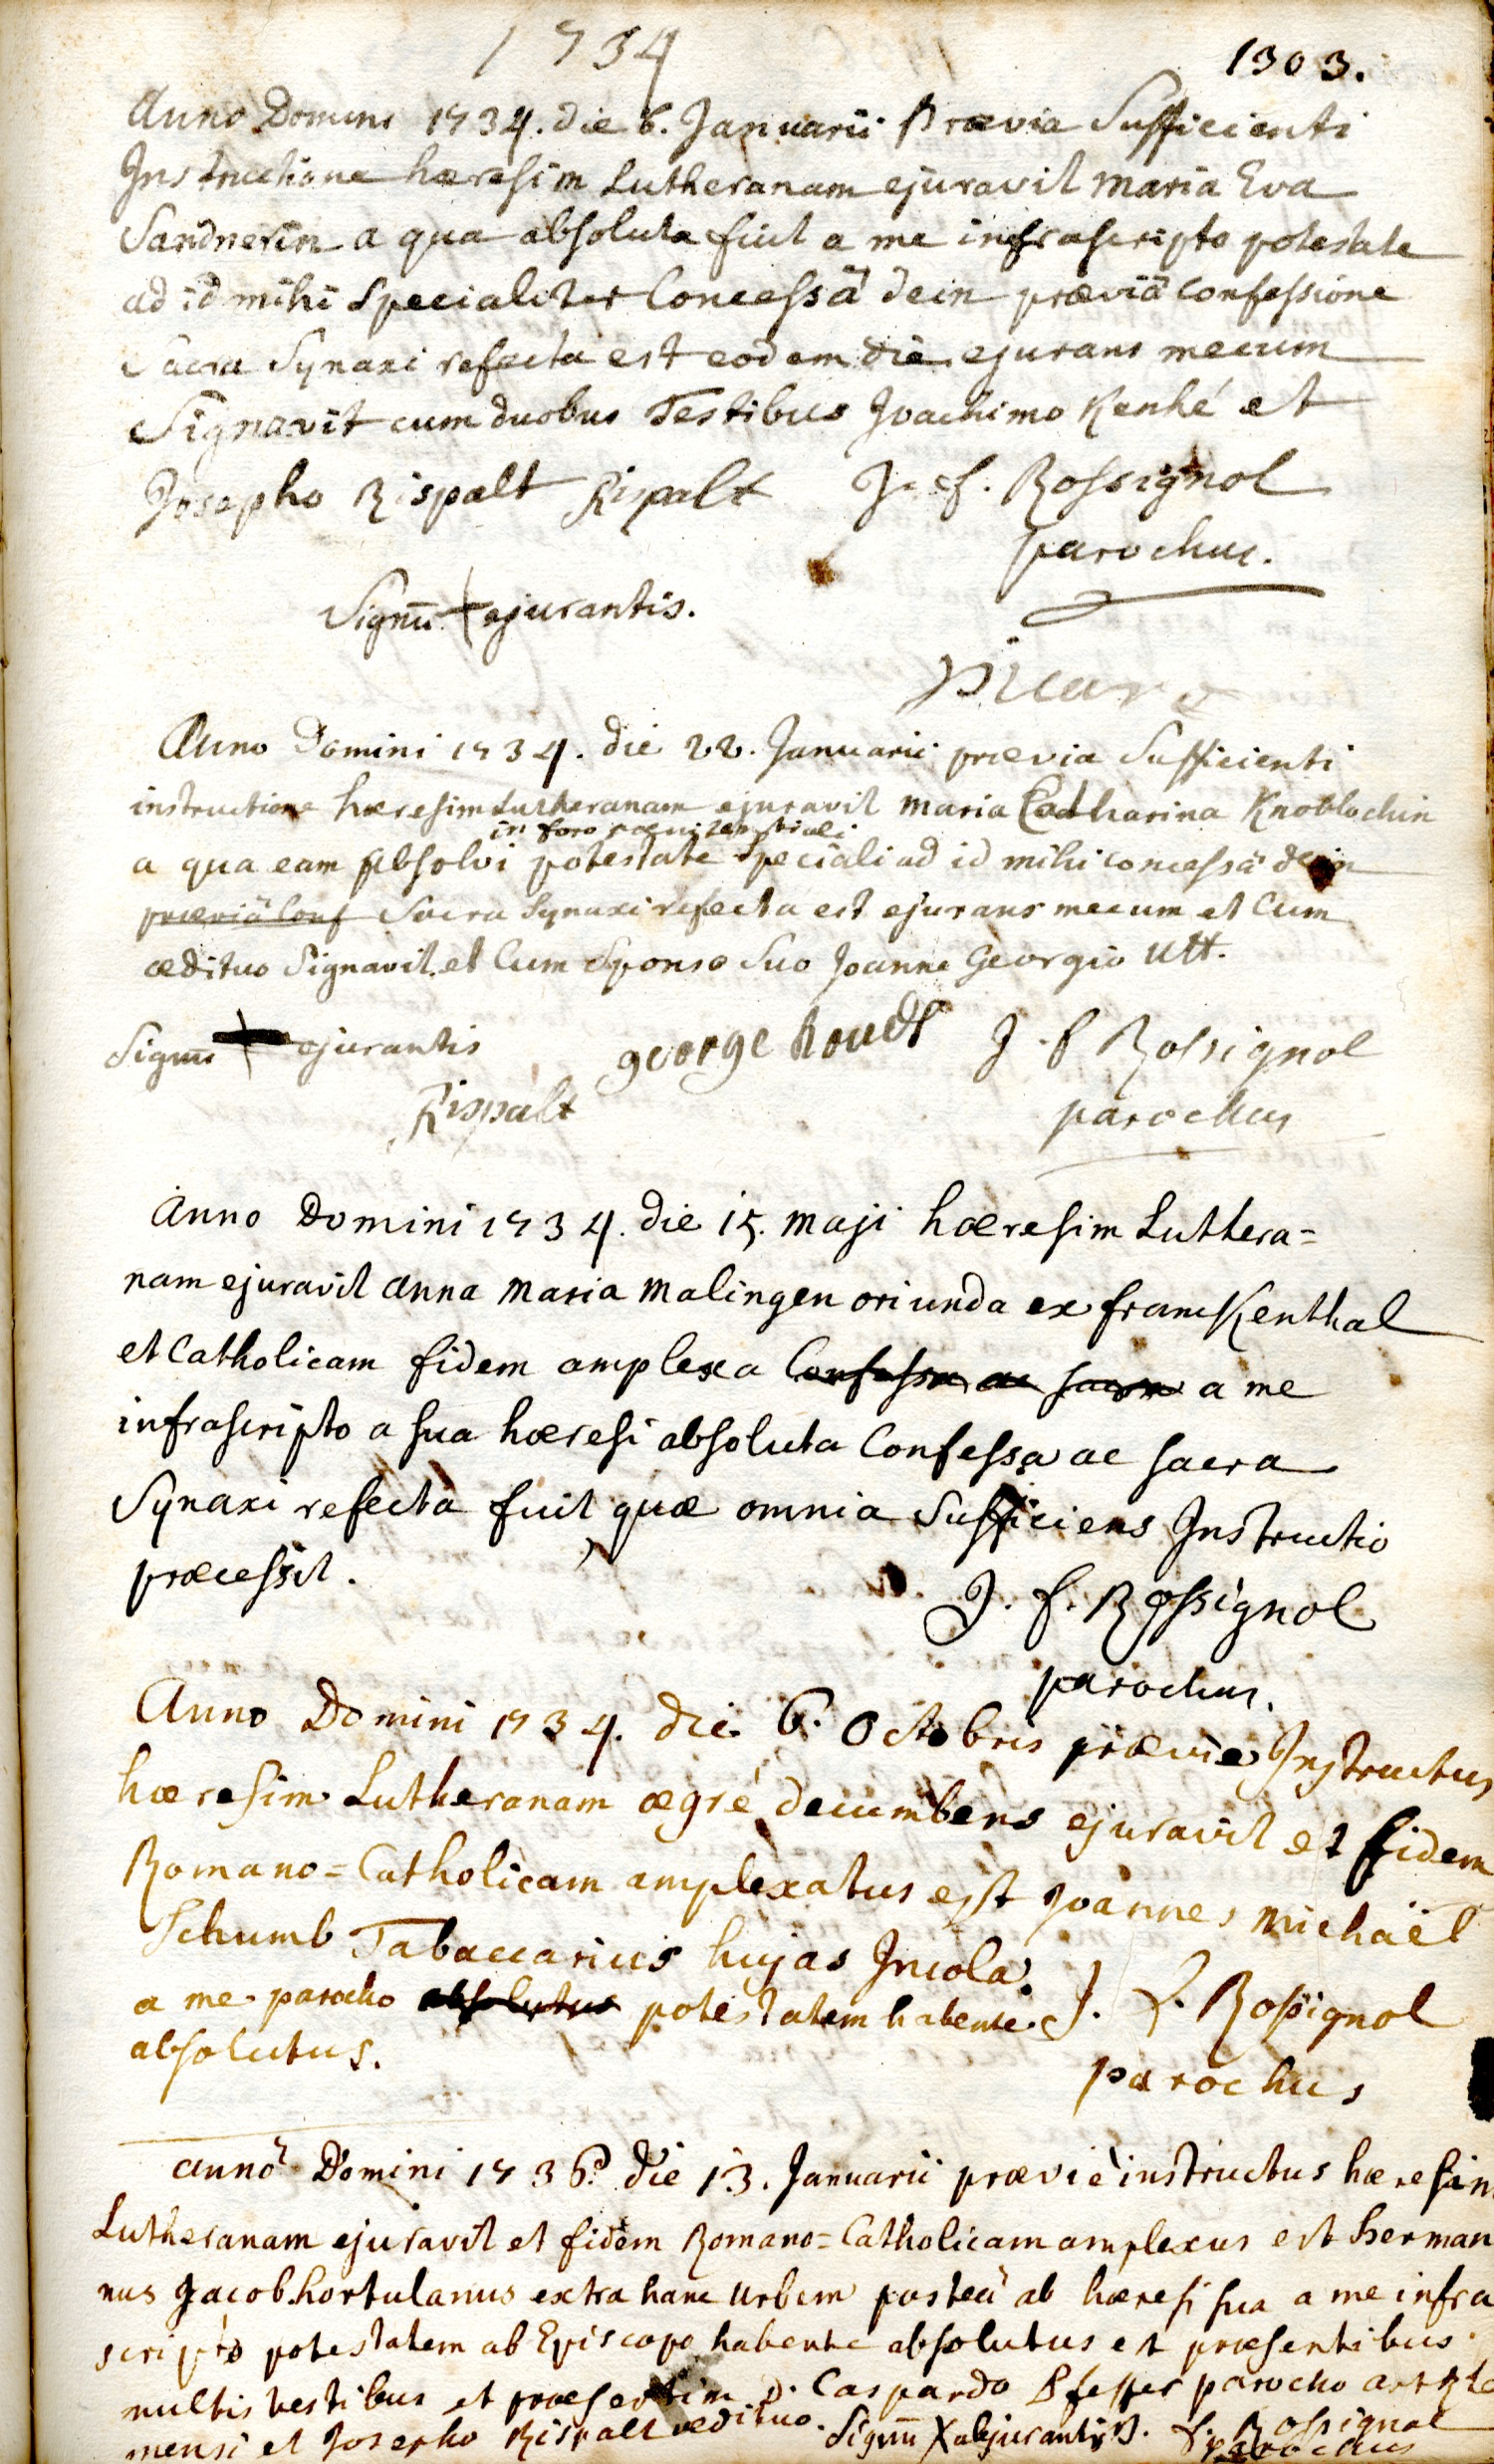 1734
1303.
Anno Domini 1734. die 6. Januarii Prævia Sufficienti
Instructione hæresim Lutheranam ejuravit Maria Eva
Sandnerin a qua absoluta fuit a me infrascripto potestate
ad id mihi Specialiter Concessâ dein præviâ confessione
Sacra Synaxi refecta est eodem die ejurans mecum
Signavit cum duobus Testibus Joachimo Kenké et
Josepho Rispalt Rispalt J. f. Rossignol
parochus.
Signū + ejurantis.
Anno Domini 1734. die 22. Januarii prævia Sufficienti
instructione hæresim Lutheranam ejuravit Maria Catharina Knoblochin
in foro pœnitentiali
a qua eam Absolvi potestate Speciali ad id mihi concessâ dein
præviâ Conf Sacra Synaxi refecta est ejurans mecum et Cum
ædituo Signavit et Cum Sponso Suo Joanne Georgio Utt.
Signū + ejurantis george J. f Rossignol
Rispalt parochus
Anno Domini 1734. die 15. Maji hæresim Luthera=
nam ejuravit Anna Maria Malingen oriunda ex franckenthal
et Catholicam fidem amplexa Confessa ac sacra a me
infrascripto a sua hæresi absoluta Confessa ac sacra
Synaxi refecta fuit quæ omnia Sufficiens Instructio
præcessit.
J. f. Rossignol
parochus.
Anno Domini 1734. die 6. Octobris prævie Instructus
hæresim Lutheranam ægrè decumbens ejuravit et fidem
Romano=Catholicam amplexatus est Joannes Michaël
Schumb Tabaccarius hujas Incola.
a me parocho absolutus potestatem habente J. f. Rossignol
absolutus.
parochus
Anno Domini 1736. die 13. Januarii præviè instructus hæresim
Lutheranam ejuravit et fidem Romano=Catholicam amplexus est Herman
nus Jacob hortulanus extra hanc Urbem posteà ab hæresi sua a me infra
scripto potestatem ab Episcopo habente absolutus est præsentibus
multis testibus et præsertim D. Caspardo Pfeffer parocho
mensi et Josepho Rispalt ædituo. Signū X abjurantis. f. Rossignol
parochus